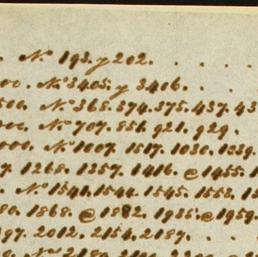 . No 193. y 202. . . . .
No 3405. y 3406. . . .
500. No 365. 374. 375. 437. 43
No 707. 851. 921. 929.
000. No 1007. 1517. 1030. 1039.
7. 1268. 1357. 1416. @ 1455. 1
. No 1541. 1544. 1545. 1553. 15
80. 1868. @ 1882. 1935. @ 1959.
197. 2012. 2154. 2187. . .